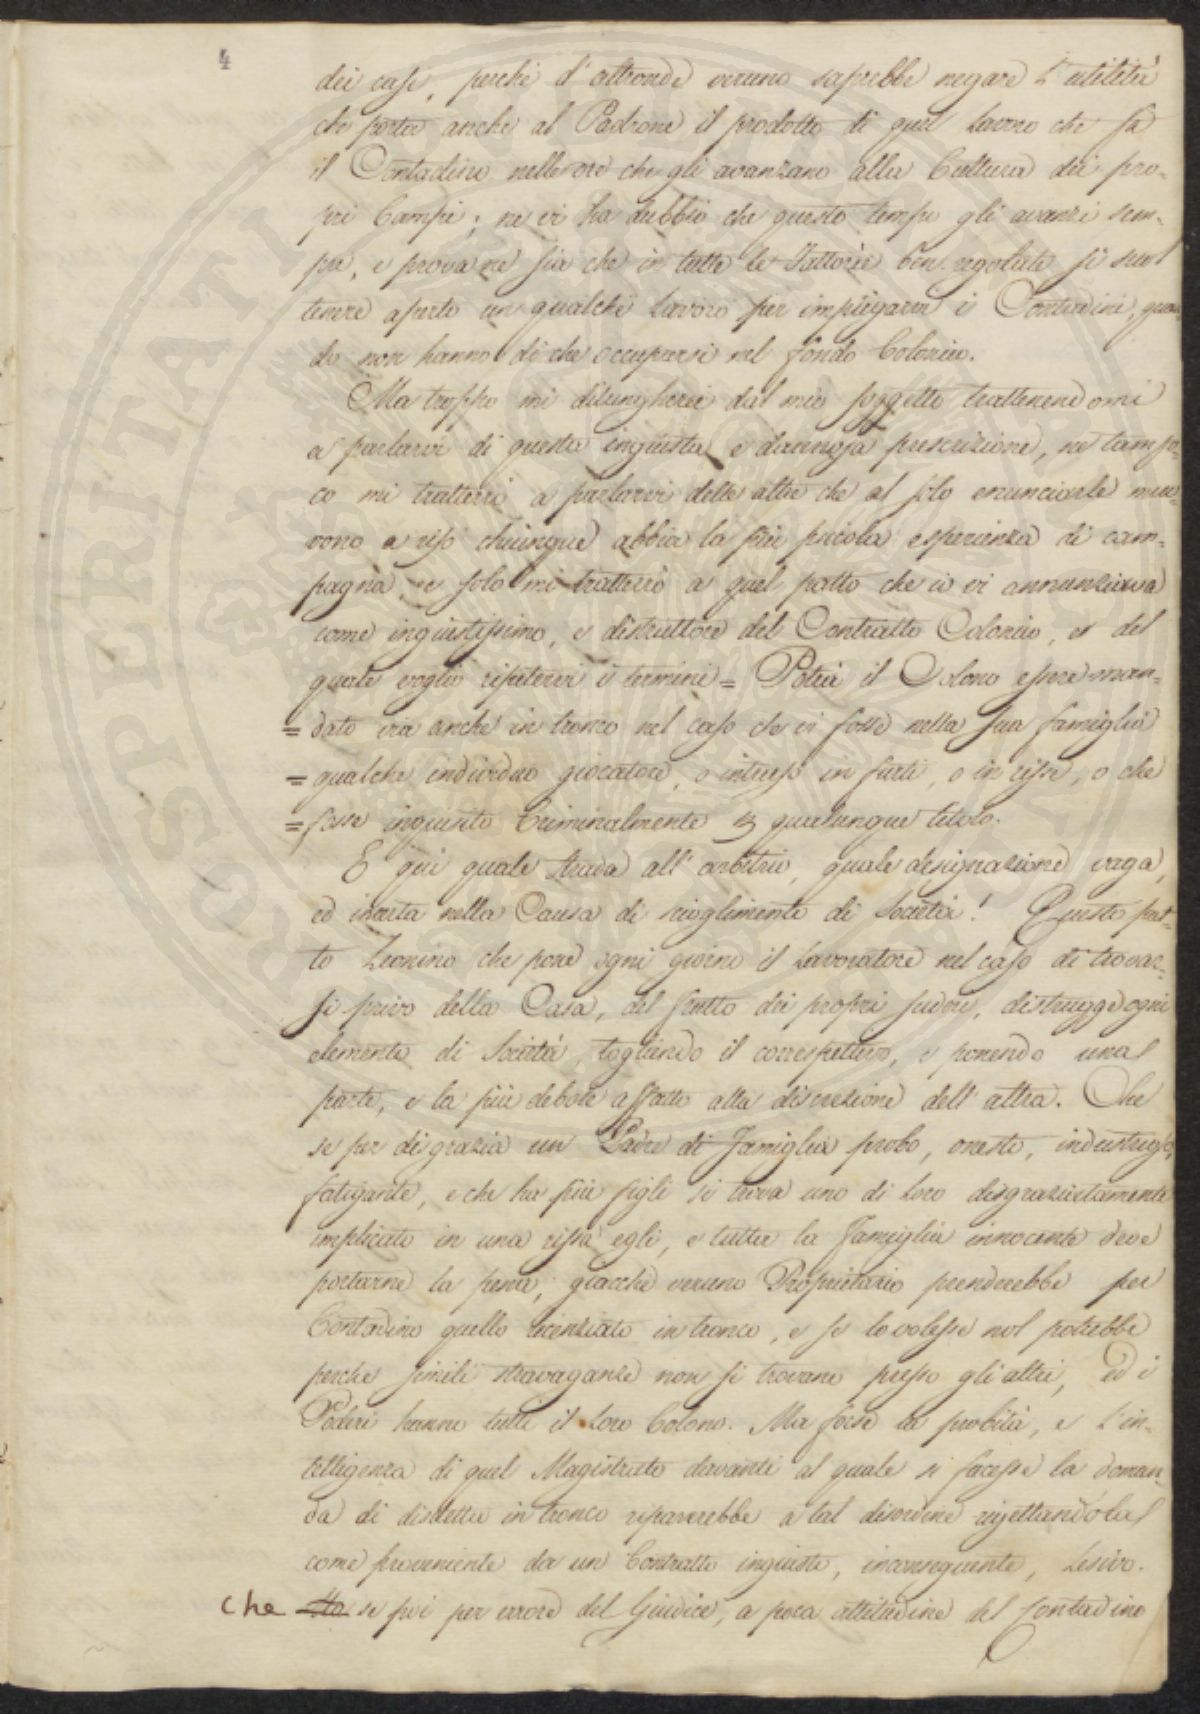 4
dei casi, perchè d'altronde veruno saprebbe negare l'utilità
che porta anche al Padrone il prodotto di quel lavoro che fà
il Contadino nelle ore che gli avanzano alla Cultura dei pro-
pri Campi; ne vi ha dubbio che questo tempo gli avanzi sem-
pre, e prova ne sia che in tutte le Fattorie ben regolate si suol
tenere aperto un qualche lavoro per impiegarvi i Contadini, quan-
do non hanno di che occuparsi nel fondo Colonico.
Ma troppo mi dilungherei dal mio soggetto trattenendomi
a parlarvi di questa ingiusta, e dannosa prescrizione, ne tampo-
co mi tratterrò a parlarvi delle altre che al solo enunciarle muo-
vono a riso chiunque abbia la più piccola esperienza di cam-
pagna, e solo mi tratterrò a quel patto che io vi annunziava
come ingiustissimo, e distruttore del Contratto Colonico, e del
quale voglio ripetervi i termini = Potrà il Colono essere man-
= dato via anche in tronco nel caso che vi fosse nella sua famiglia
= qualche individuo giocatore, o intriso in furti, o in risse, o che
= fosse inquisito Criminalmente per qualunque titolo.
E qui quale strada all'arbitrio, quale designazione vaga,
ed incerta nella Causa di scioglimento di Società! Questo pat-
to Leonino che pone ogni giorno il Lavoratore nel caso di trovar-
si privo della Casa, del frutto dei propri sudori, distrugge ogni
elemento di Società, togliendo il correspettivo, e ponendo una
parte, e la più debole affatto alla discrezione dell'altra. Che
se per disgrazia un Padre di Famiglia probo, onesto, industrioso,
fatigante, e che ha più figli si trova uno di Loro disgraziatamente
implicato in una rissa egli, e tutta la Famiglia innocente deve
portarne la pena, giacchè veruno Proprietario prenderebbe per
Contadino quello licenziato in tronco, e se lo volesse nol potrebbe
perche simili stravaganze non si trovano presso gli altri, ed i
Poderi hanno tutti il Loro Colono. Ma forse la probità, e l'in-
telligenza di quel Magistrato davanti al quale si facesse la doman-
da di disdetta in tronco riparerebbe a tal disordine rigettandola
come proveniente da un Contratto ingiusto, inconseguente, Lesivo.
che se poi per errore del Giudice, a poca attitudine del Contadino
COSPERITATI PUBLICAE